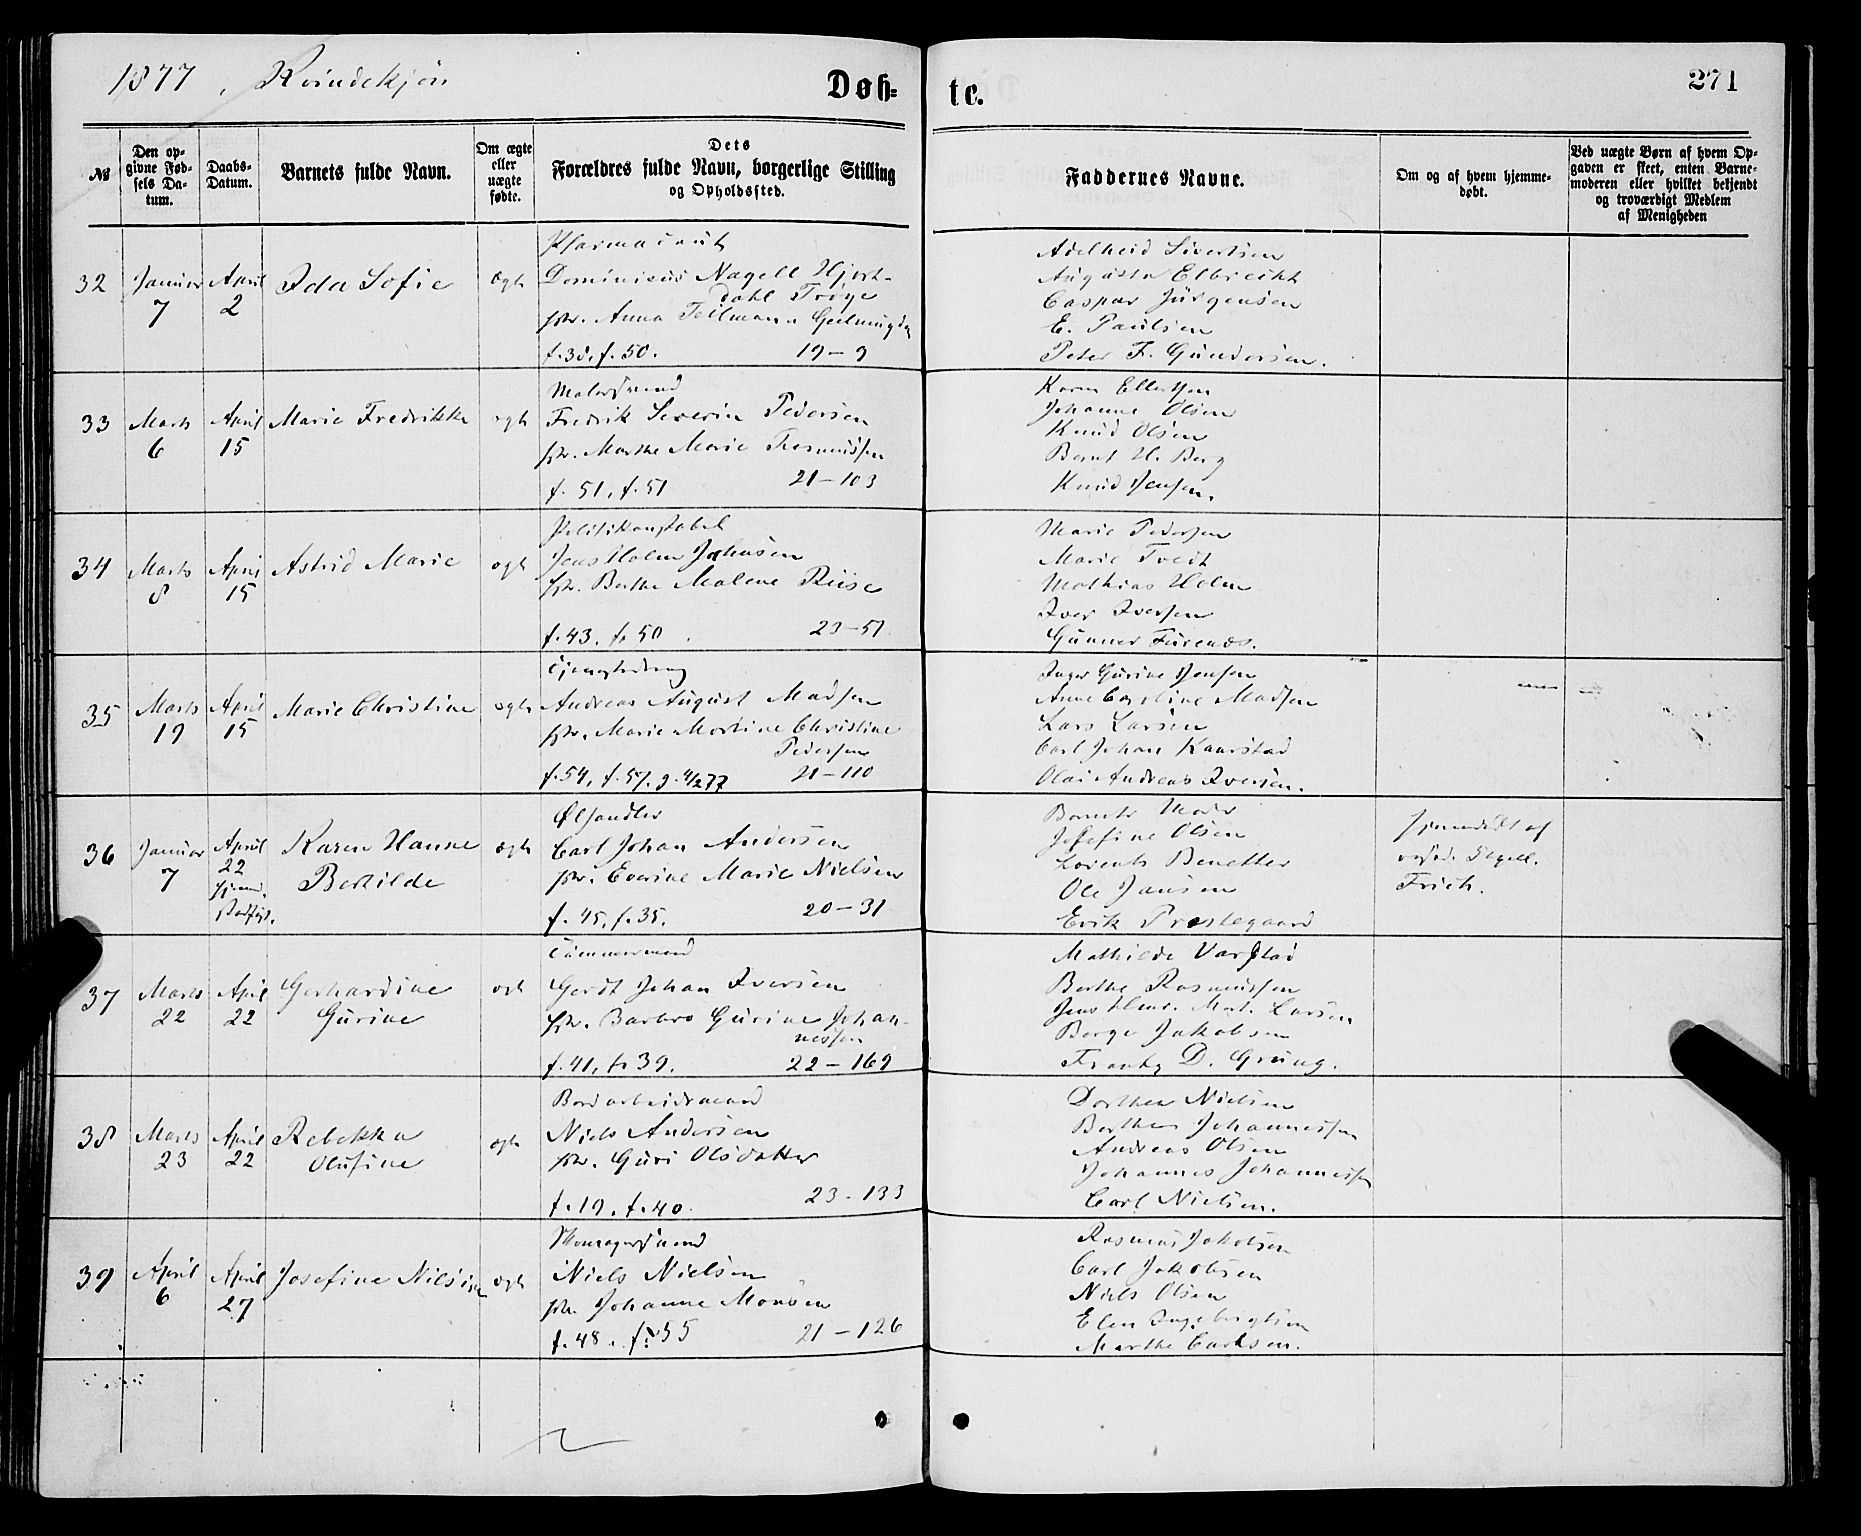 1877, Kvindekjøn
Døb-
te.
271
№
Den op-
givne Fød-
sels Da-
tum.
Daabs-
Datum.
Barnets fulde Navn.
Om ægte
eller
uægte
fødte.
Dets
Forældres fulde Navn, borgerlige Stilling
og Opholdssted.
Faddernes Navne.
Om og af hvem hjemme-
døbt.
Ved uægte Børn af hvem Op-
gaven er skeet, enten Barne-
moderen eller hvilket bekjendt
og troværdigt Medlem
af Menigheden
32
Januar
7
April
2
Ida Sofie
ægte
Pharmaceut
Dominicus Nagell Hjort-
dahl Trøye
Anna Teilmann
f. 38, f. 50. 19-9
Adelheid Sivertsen
Augusta Elbrecht
Caspar Jürgensen
E. Paulsen
Peter F. Gundersen.
33
Marts
6
April
15
Marie Fredrikke
ægte
Malersvend
Fredrik Severin Pedersen
Marthe Marie Rasmussen
f. 51, f. 51 21-103
Karen Ellertsen
Johanne Olsen
Knud Olsen
Bernt H. Berg
Knud Jensen.
34
Marts
8
April
15
Astrid Marie
ægte
Politikonstabel
Jens Holm Johnsen
Berthe Malene Riise
f. 43, f. 50. 23-51
Marie Pedersen
Marie Tvedt
Mathias Holm
Iver Iversen
Gunner Furenæs.
35
Marts
19
April
15
Marie Christine
ægte
Andreas August Madsen
Marie Martine Christine
Pedersen
f. 54, f. 57. g. 4/2 77 21-110
Inger Gurine Jensen
Anne Caroline Madsen
Lars Larsen
Carl Johan Kaarstad
Olai Andreas Iversen.
36
Januar
7
April
22
Karen Hanne
Bertilde
ægte
Ølhandler
Carl Johan Andersen
Everine Marie Nielsen
f. 45, f. 35. 20-31
Barnets Moder
Josefine Olsen
Lorents Benetter
Ole Jansen
Erik Prestegaard
hjemmedøbt af
Frich.
37
Marts
22
April
22
Gerhardine
Gurine
Tømmermand
Gerdt Johan Iversen
Barbro Gurine Johan-
nessen
f. 41, f. 39. 22-169
Mathilde Varstad
Berthe Rasmussen
Jens Henr. Mart. Larsen
Berge Jakobsen
D. Grung.
38
Marts
23
April
22
Rebekka
Olufine
ægte
Bordarbeidsmand
Niels Andersen
Guri Olsdatter
f. 19, f. 40. 23-133
Dorthea Nielsen
Berthe Johannessen
Andreas Olsen
Johannes Johannessen
Carl Nielsen.
39
April
6
April
27
Josefine Nilsine
ægte
Skomagersvend
Niels Nielsen
Johanne Monsen
f. 48, f. 55 21-126
Rasmus Jakobsen
Carl Jakobsen
Niels Olsen
Elen Ingebrigtsen
Marthe Carlsen.